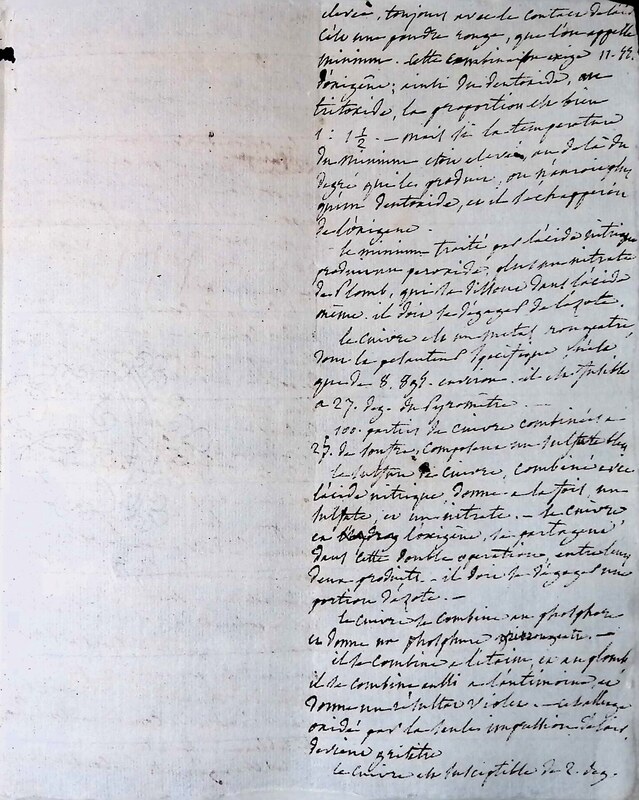 elevée, toujours avec le contact de l'air
cède une poudre rouge, que l'on appelle
minium. cette combinaison exige 11-
d'oxigène; ainsi du deutoxide, au
tritoxide, la proportion est bien
1 : 1 ½. — mais si la temperature
du minium etoit elevée, au de là du
degré qui les produit, on n'auroit plus
qu'un deutoxide, et il s'echapperoit
de l'oxigene.
le minium traité par l'acide nitrique
produit un peroxide, plus un nitrate
de plomb, qui se dissout dans l'acide
même. il doit se dégager de l'azote.
le cuivre est un metal rougeatre
dont la pesanteur specifique, n'est
que de 8. 895. environ. il est fusible
a 27. deg. du Pyrometre. —
100. parties de cuivre combinées a
27. de soufre, composent un sulfure bleu
le sulfure de cuivre, combiné avec
l'acide nitrique, donne a la fois, un
sulfate, et un nitrate. — le cuivre
et l'oxigène, se partagent
dans cette double operation, entre les
deux produits. — il doit se dégager une
portion d'azote. —
le cuivre se combine au phosphore
et donne un phosphure —
il se combine a l'etain, et au plomb
il se combine aussi a l'antimoine et
donne un résultat violet. — cet alliage
oxidé par la seule impulsion de l'air,
devient grisatre
le cuivre est susceptible de 2. deg.